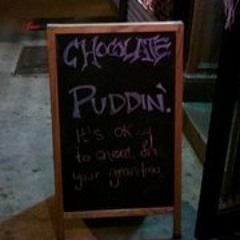 CHOCOLATE
PUDDIN'.
It's okay
to cheat on
your grandma.